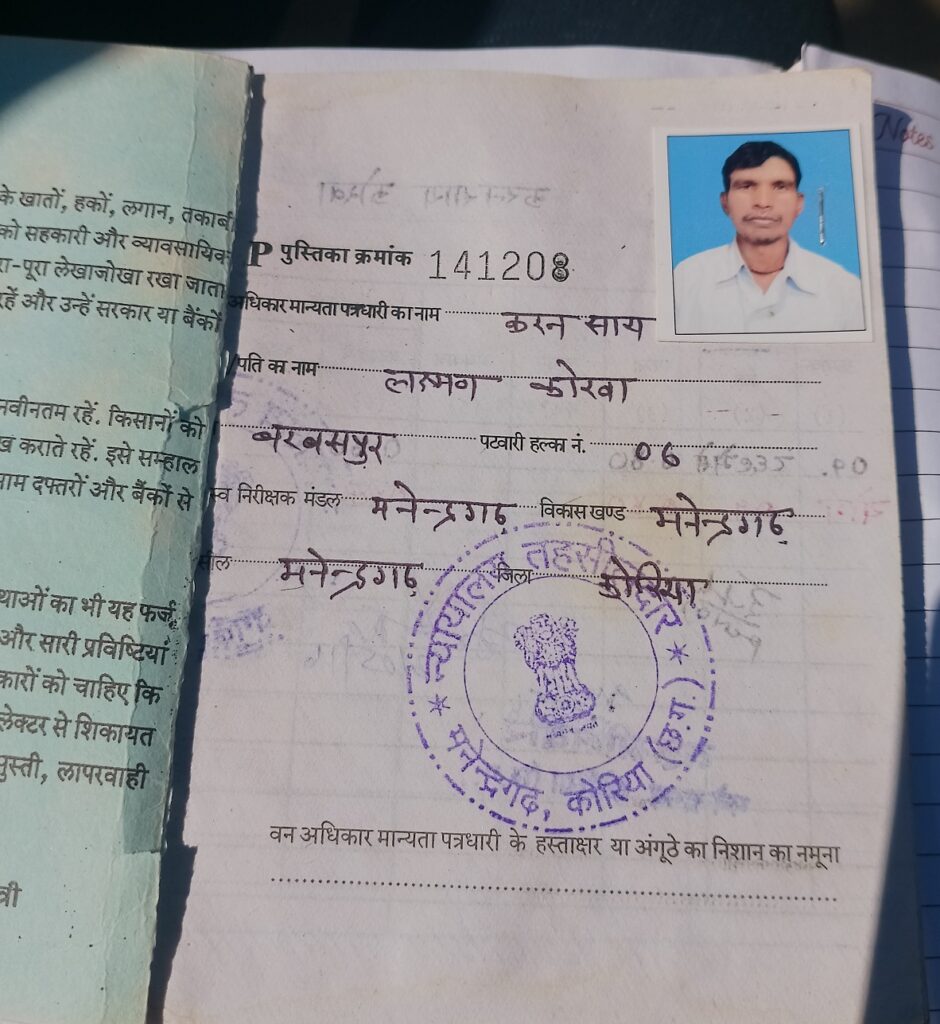 के खातों, हकों, लगान, तकाबी
को सहकारी और व्यावसायिक
रा-पूरा लेखाजोखा रखा जाता
रहें और उन्हें सरकार या बैंकों
नवीनतम रहें. किसानों को
ख कराते रहें. इसे सम्हाल
माम दफ्तरों और बैंकों से
थाओं का भी यह फर्ज
और सारी प्रविष्टियां
कारों को चाहिए कि
लेक्टर से शिकायत
सुस्ती, लापरवाही
त्री
P पुस्तिका क्रमांक 141208
अधिकार मान्यता पत्रधारी का नाम करन साय
/पति का नाम लक्ष्मण कोरवा
बरबसपुर पटवारी हल्का नं. 06
स्व निरीक्षक मंडल मनेन्द्रगढ़ विकास खण्ड मनेन्द्रगढ़
सील मनेन्द्रगढ़ जिला कोरिया
न्यायालय तहसीलदार
मनेन्द्रगढ़, कोरिया (छ.ग.)
वन अधिकार मान्यता पत्रधारी के हस्ताक्षर या अंगूठे का निशान का नमूना
Notes